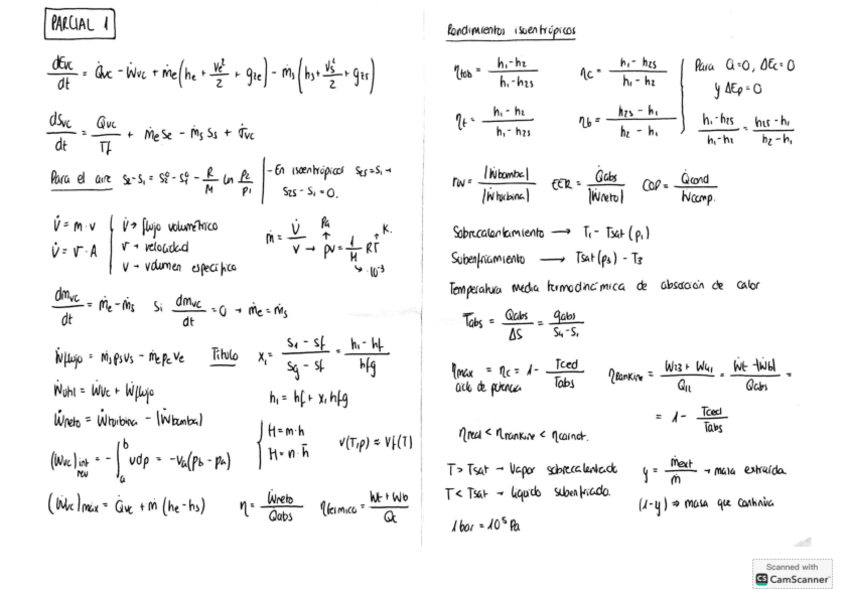 PARCIAL 1
dEvc/dt = Q̇vc - Ẇvc + ṁe(he + ve²/2 + gze) - ṁs(hs + vs²/2 + gzs)
dSvc/dt = Q̇vc/Tf + ṁe se - ṁs ss + σ̇vc
Para el aire s2-s1 = s2° - s1° - R/M ln p2/p1
- En isoentrópicos s2s = s1 →
s2s - s1 = 0.
V̇ = m·v
V̇ = v·A
V̇ → flujo volumétrico
v → velocidad
v → volumen específico
ṁ = V̇/v → pv = 1/M RT
Pa
K.
·10⁻³
dmvc/dt = ṁe - ṁs Si dmvc/dt = 0 → ṁe = ṁs
Ẇflujo = ṁs ps vs - ṁe pe ve
Título x1 = (s1 - sf)/(sg - sf) = (h1 - hf)/hfg
Ẇútil = Ẇvc + Ẇflujo
h1 = hf + x1 hfg
Ẇneto = Ẇturbina - |Ẇbomba|
(Ẇvc)int rev = - ∫ab vdp = -va(pb - pa)
H = m·h
H = n·h̄
v(T,p) ≈ vf(T)
(Ẇvc)máx = Q̇vc + ṁ(he - hs)
η = Ẇneto/Qabs
ηtérmica = (Wt + Wb)/Qc
Rendimientos isoentrópicos
ηtob = (h1-h2)/(h1-h2s)
ηc = (h1-h2s)/(h1-h2)
Para Q=0, ΔEc=0
y ΔEp=0
ηt = (h1-h2)/(h1-h2s)
ηb = (h2s-h1)/(h2-h1)
(h1-h2s)/(h1-h2) = (h2s-h1)/(h2-h1)
rw = |Ẇbomba|/|Ẇturbina| EER = Q̇abs/|Ẇneto| COP = Q̇cond/Ẇcomp.
Sobrecalentamiento → T1 - Tsat(p1)
Subenfriamiento → Tsat(p3) - T3
Temperatura media termodinámica de absorción de calor
T̄abs = Qabs/ΔS = qabs/(s4-s1)
ηmax = ηc = 1 - Tced/Tabs
ciclo de potencia
ηrankine = (W13 + W41)/Q12 = (Ẇt - |Ẇb|)/Qabs =
= 1 - Tced/Tabs
ηreal < ηrankine < ηcarnot.
T > Tsat → Vapor sobrecalentado
T < Tsat → líquido subenfriado.
1 bar = 10⁵ Pa
y = ṁext/ṁ → masa extraída
(1-y) ⇒ masa que continúa
Scanned with
CS CamScanner